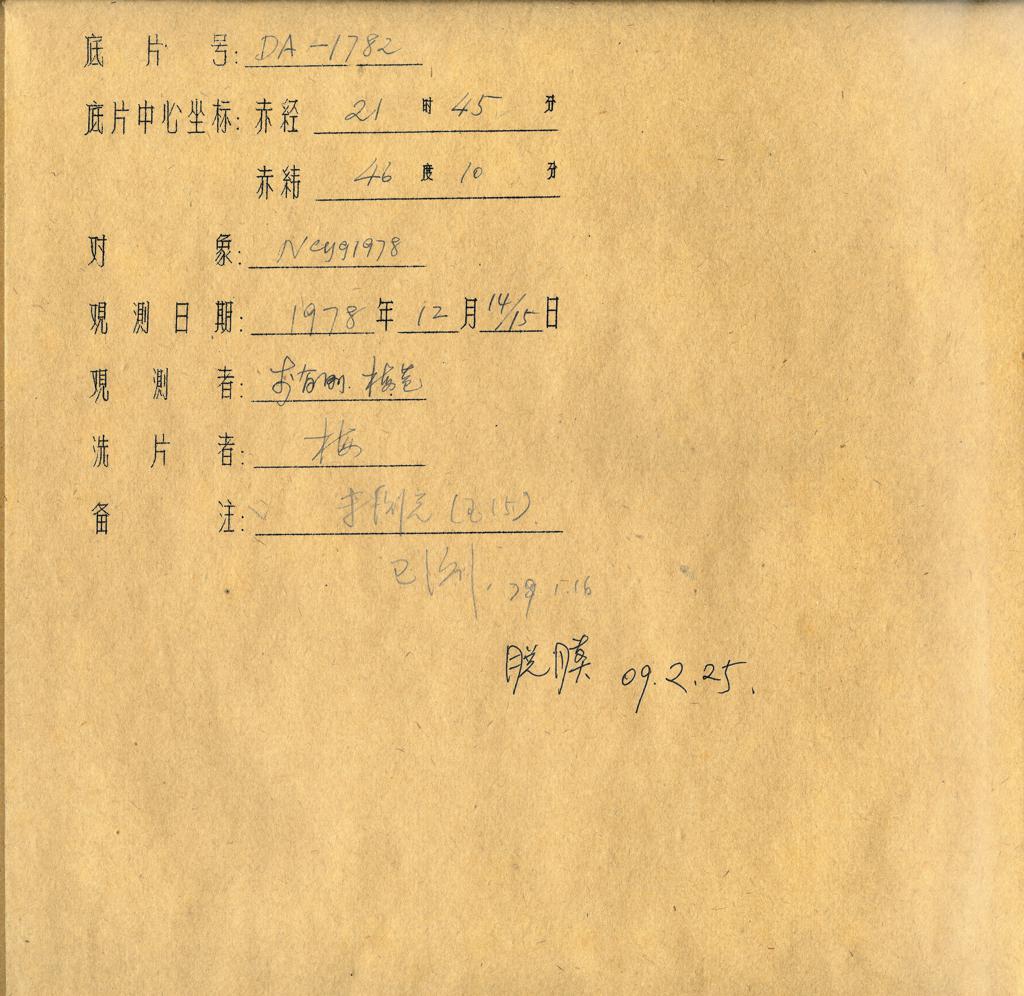 底片号: DA-1782
底片中心坐标: 赤经 21 时 45 分
赤纬 46 度 10 分
对象: NCyg1978
观测日期: 1978 年 12 月 14/15 日
观测者:
洗片者: 梅
备注:
已测. 79 1.16
脱膜 09.2.25.